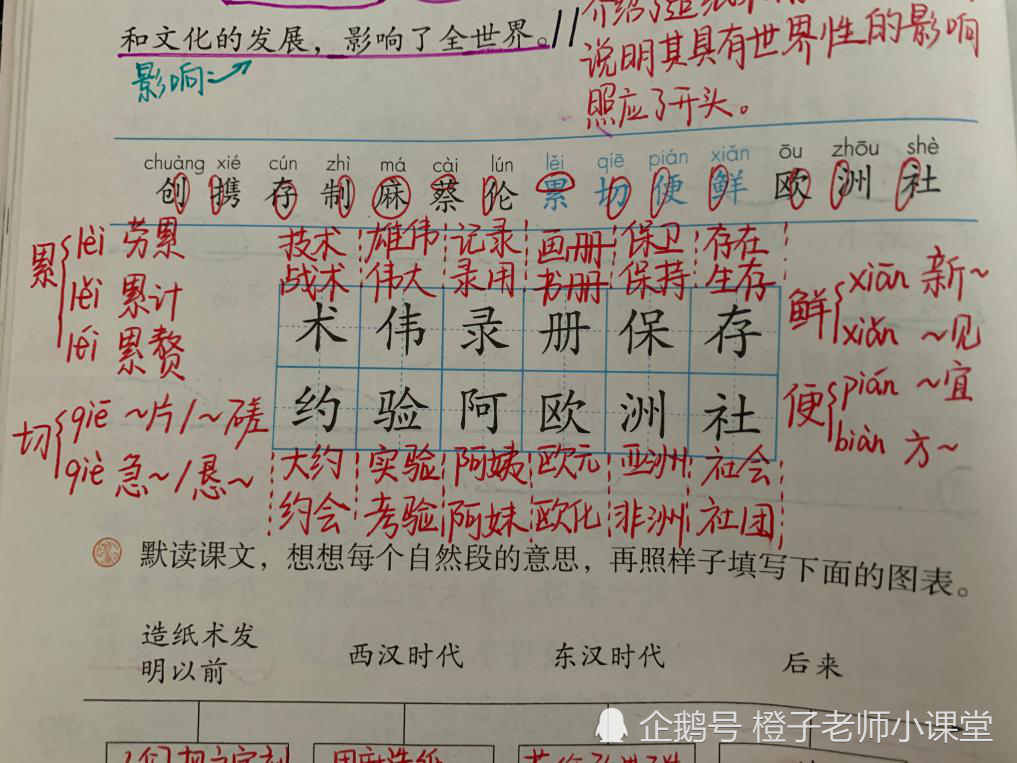 和文化的发展，影响了全世界。//
影响：
说明其具有世界性的影响
照应了开头。
chuàng xié cún zhì má cài lún lěi qiē pián xiān ōu zhōu shè
创 携 存 制 麻 蔡 伦 累 切 便 鲜 欧 洲 社
累 lèi 劳累
lěi 累计
léi 累赘
切 qiē ~片/~磋
qiè 急~/恳~
技术 雄伟 记录 画册 保卫 存在
战术 伟大 录用 书册 保持 生存
术 伟 录 册 保 存
约 验 阿 欧 洲 社
大约 实验 阿姨 欧元 亚洲 社会
约会 考验 阿妹 欧化 非洲 社团
鲜 xiān 新~
xiǎn ~见
便 pián ~宜
biàn 方~
默读课文，想想每个自然段的意思，再照样子填写下面的图表。
造纸术发
明以前
西汉时代
东汉时代
后来
企鹅号 橙子老师小课堂